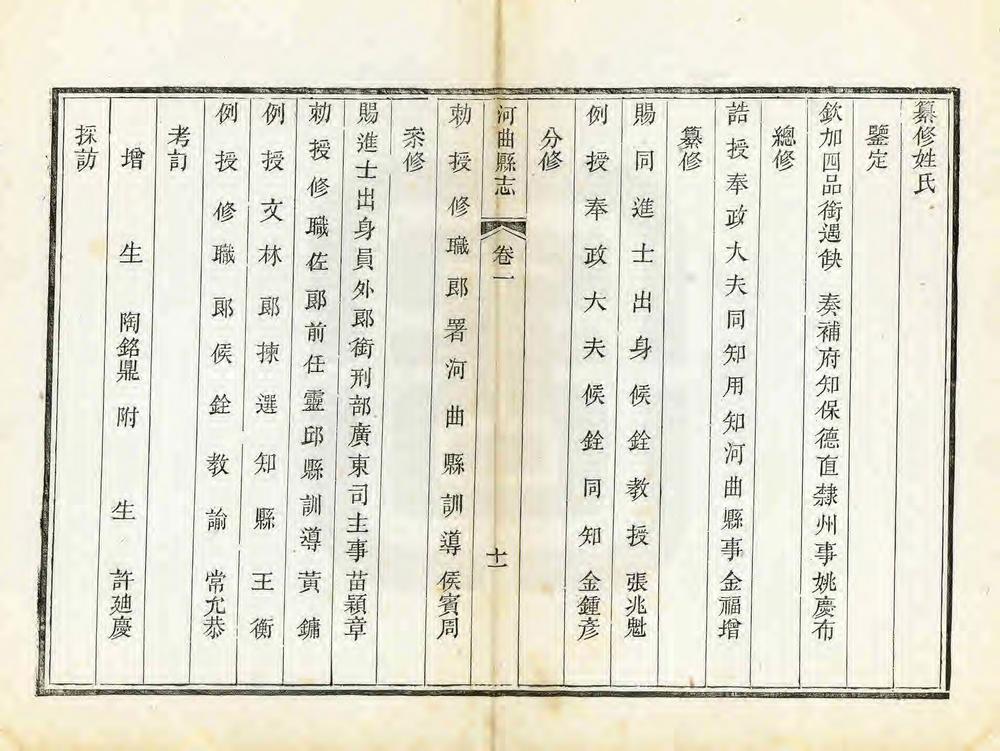 纂修姓氏
鑒定
欽加四品銜遇缺　奏補府知保德直隸州事姚慶布
總修
誥授奉政大夫同知用知河曲縣事金福增
纂修
賜同進士出身候銓教授張兆魁
例授奉政大夫候銓同知金鍾彥
分修
勅授修職郎署河曲縣訓導侯賓周
河曲縣志　卷一　十一
叅修
賜進士出身員外郎銜刑部廣東司主事苗穎章
勅授修職佐郎前任靈邱縣訓導黃鏞
例授文林郎揀選知縣王衡
例授修職郎候銓教諭常允恭
考訂
增生陶銘鼎附生許廸慶
採訪